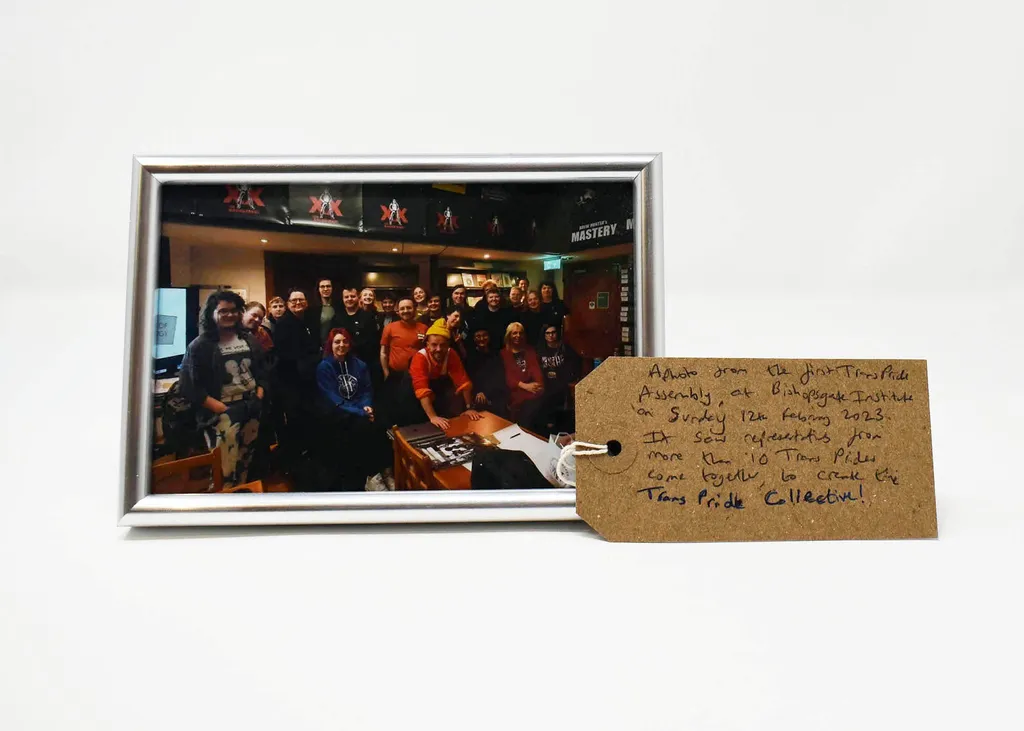 MASTERY
A photo from the first Trans Pride
Assembly, at Bishopsgate Institute
on Sunday 12th February 2023.
It saw representitives from
more than 10 Trans Prides
come together, to create the
Trans Pride Collective!